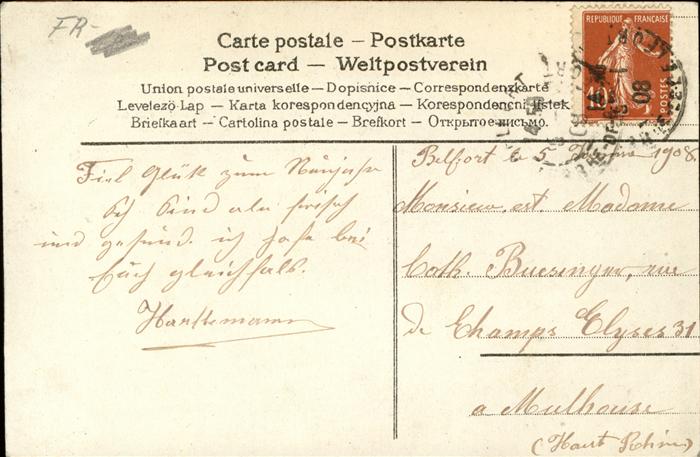 FR-
Carte postale – Postkarte
Post card – Weltpostverein
Union postale universelle – Dopisnice – Correspondenzkarte
Levelezö-Lap – Karta korespondencyjna – Korespondencni listek
Briefkaart – Cartolina postale – Brefkort – Открытое письмо.
REPUBLIQUE FRANÇAISE
10
POSTES
BELFORT
08
Fiel Glük zum Neujahr
Ich sind alle frisch
und gesund. ich hofe bei
Euch gleichfals.
Hartemann
Belfort le 5 1908
Monsieur, et. Madame
Cath. Buesinger, rue
de Champs Elyses 31
a Mulhouse
(Haut Rhin)